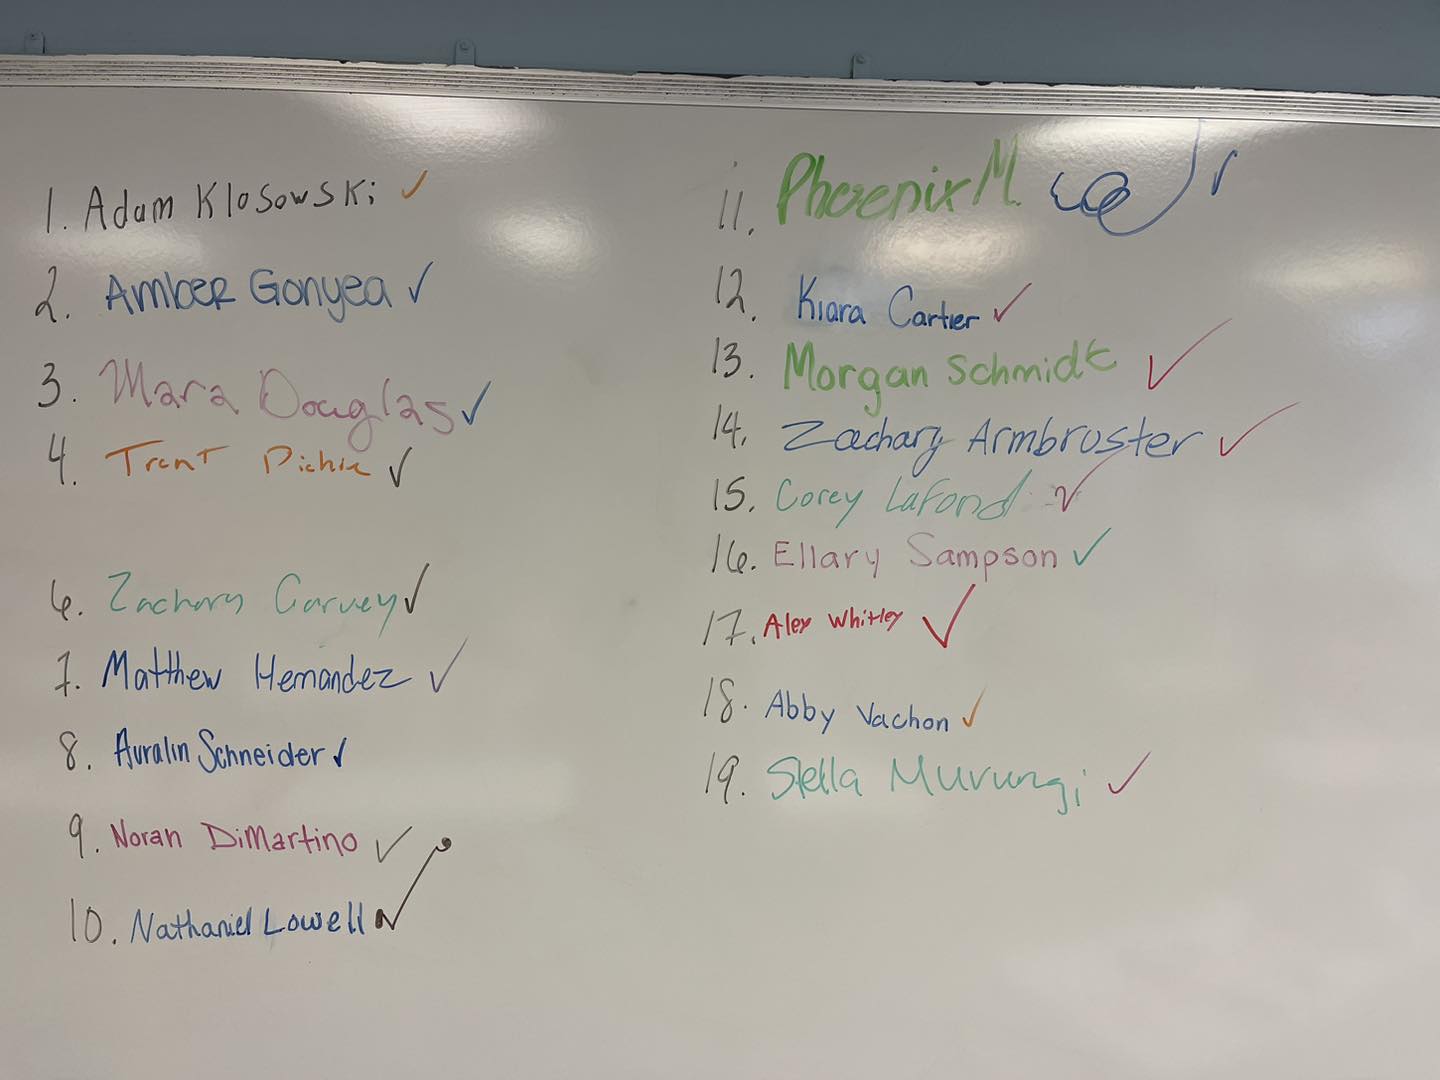 1. Adam Klosowski ✓
2. Amber Gonyea ✓
3. Mara Douglas ✓
4. Trent Dickie ✓
6. Zachary Garvey ✓
7. Matthew Hernandez ✓
8. Auralin Schneider ✓
9. Noran DiMartino ✓
10. Nathaniel Lowell ✓
11. Phoenix M. ✓
12. Kiara Cartier ✓
13. Morgan Schmidt ✓
14. Zachary Armbruster ✓
15. Corey Lafond ✓
16. Ellary Sampson ✓
17. Alex Whitley ✓
18. Abby Vachon ✓
19. Stella Murungi ✓